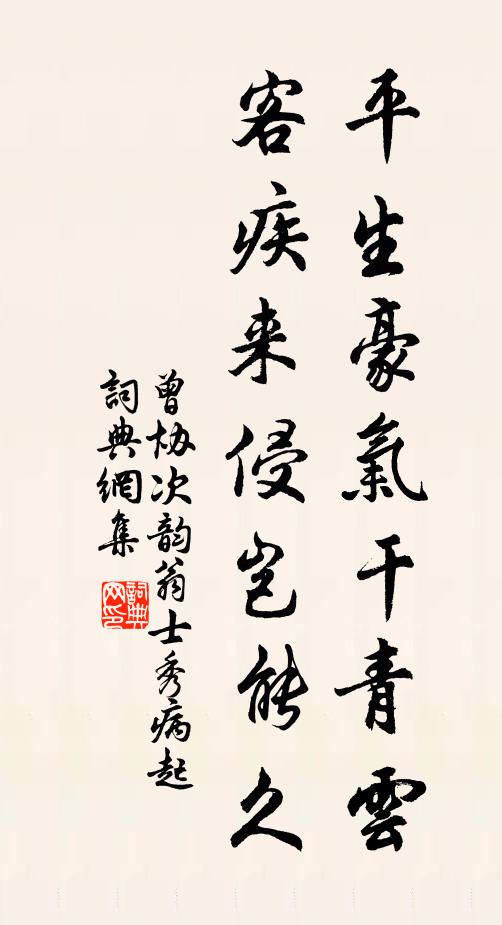 平生豪氣干青雲
客疾来侵豈能久
曾协次韵翁士秀病起
詞典網集
詞典网印